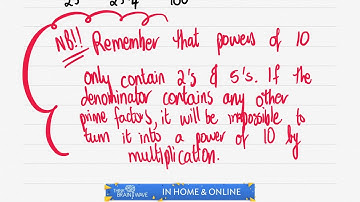 NB!! Remember that powers of 10
only contain 2's & 5's. If the
denominator contains any other
prime factors, it will be impossible to
turn it into a power of 10 by
multiplication.
BRAINWAVE
IN HOME & ONLINE